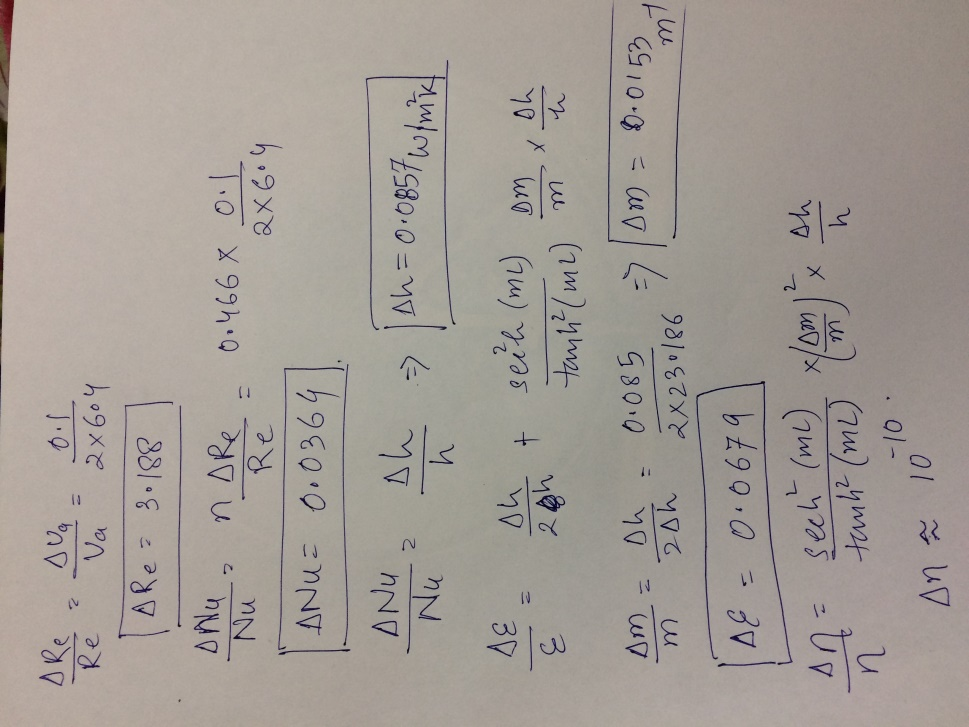 ΔRe/Re = ΔVa/Va = 0.1/(2×6.4)
ΔRe = 3.188
ΔNu/Nu = n ΔRe/Re = 0.466 × 0.1/(2×6.4)
ΔNu = 0.0364
ΔNu/Nu = Δh/h ⇒ Δh = 0.0857 W/m²K
Δε/ε = Δh/2h + sech²(mL)/tanh²(mL) Δm/m × Δh/h
Δm/m = Δh/2Δh = 0.085/(2×23.186) ⇒ Δm = 0.0153 m⁻¹
Δε = 0.0679
Δη/η = sech²(mL)/tanh²(mL) × (Δm/m)² × Δh/h
Δη ≈ 10⁻¹⁰.